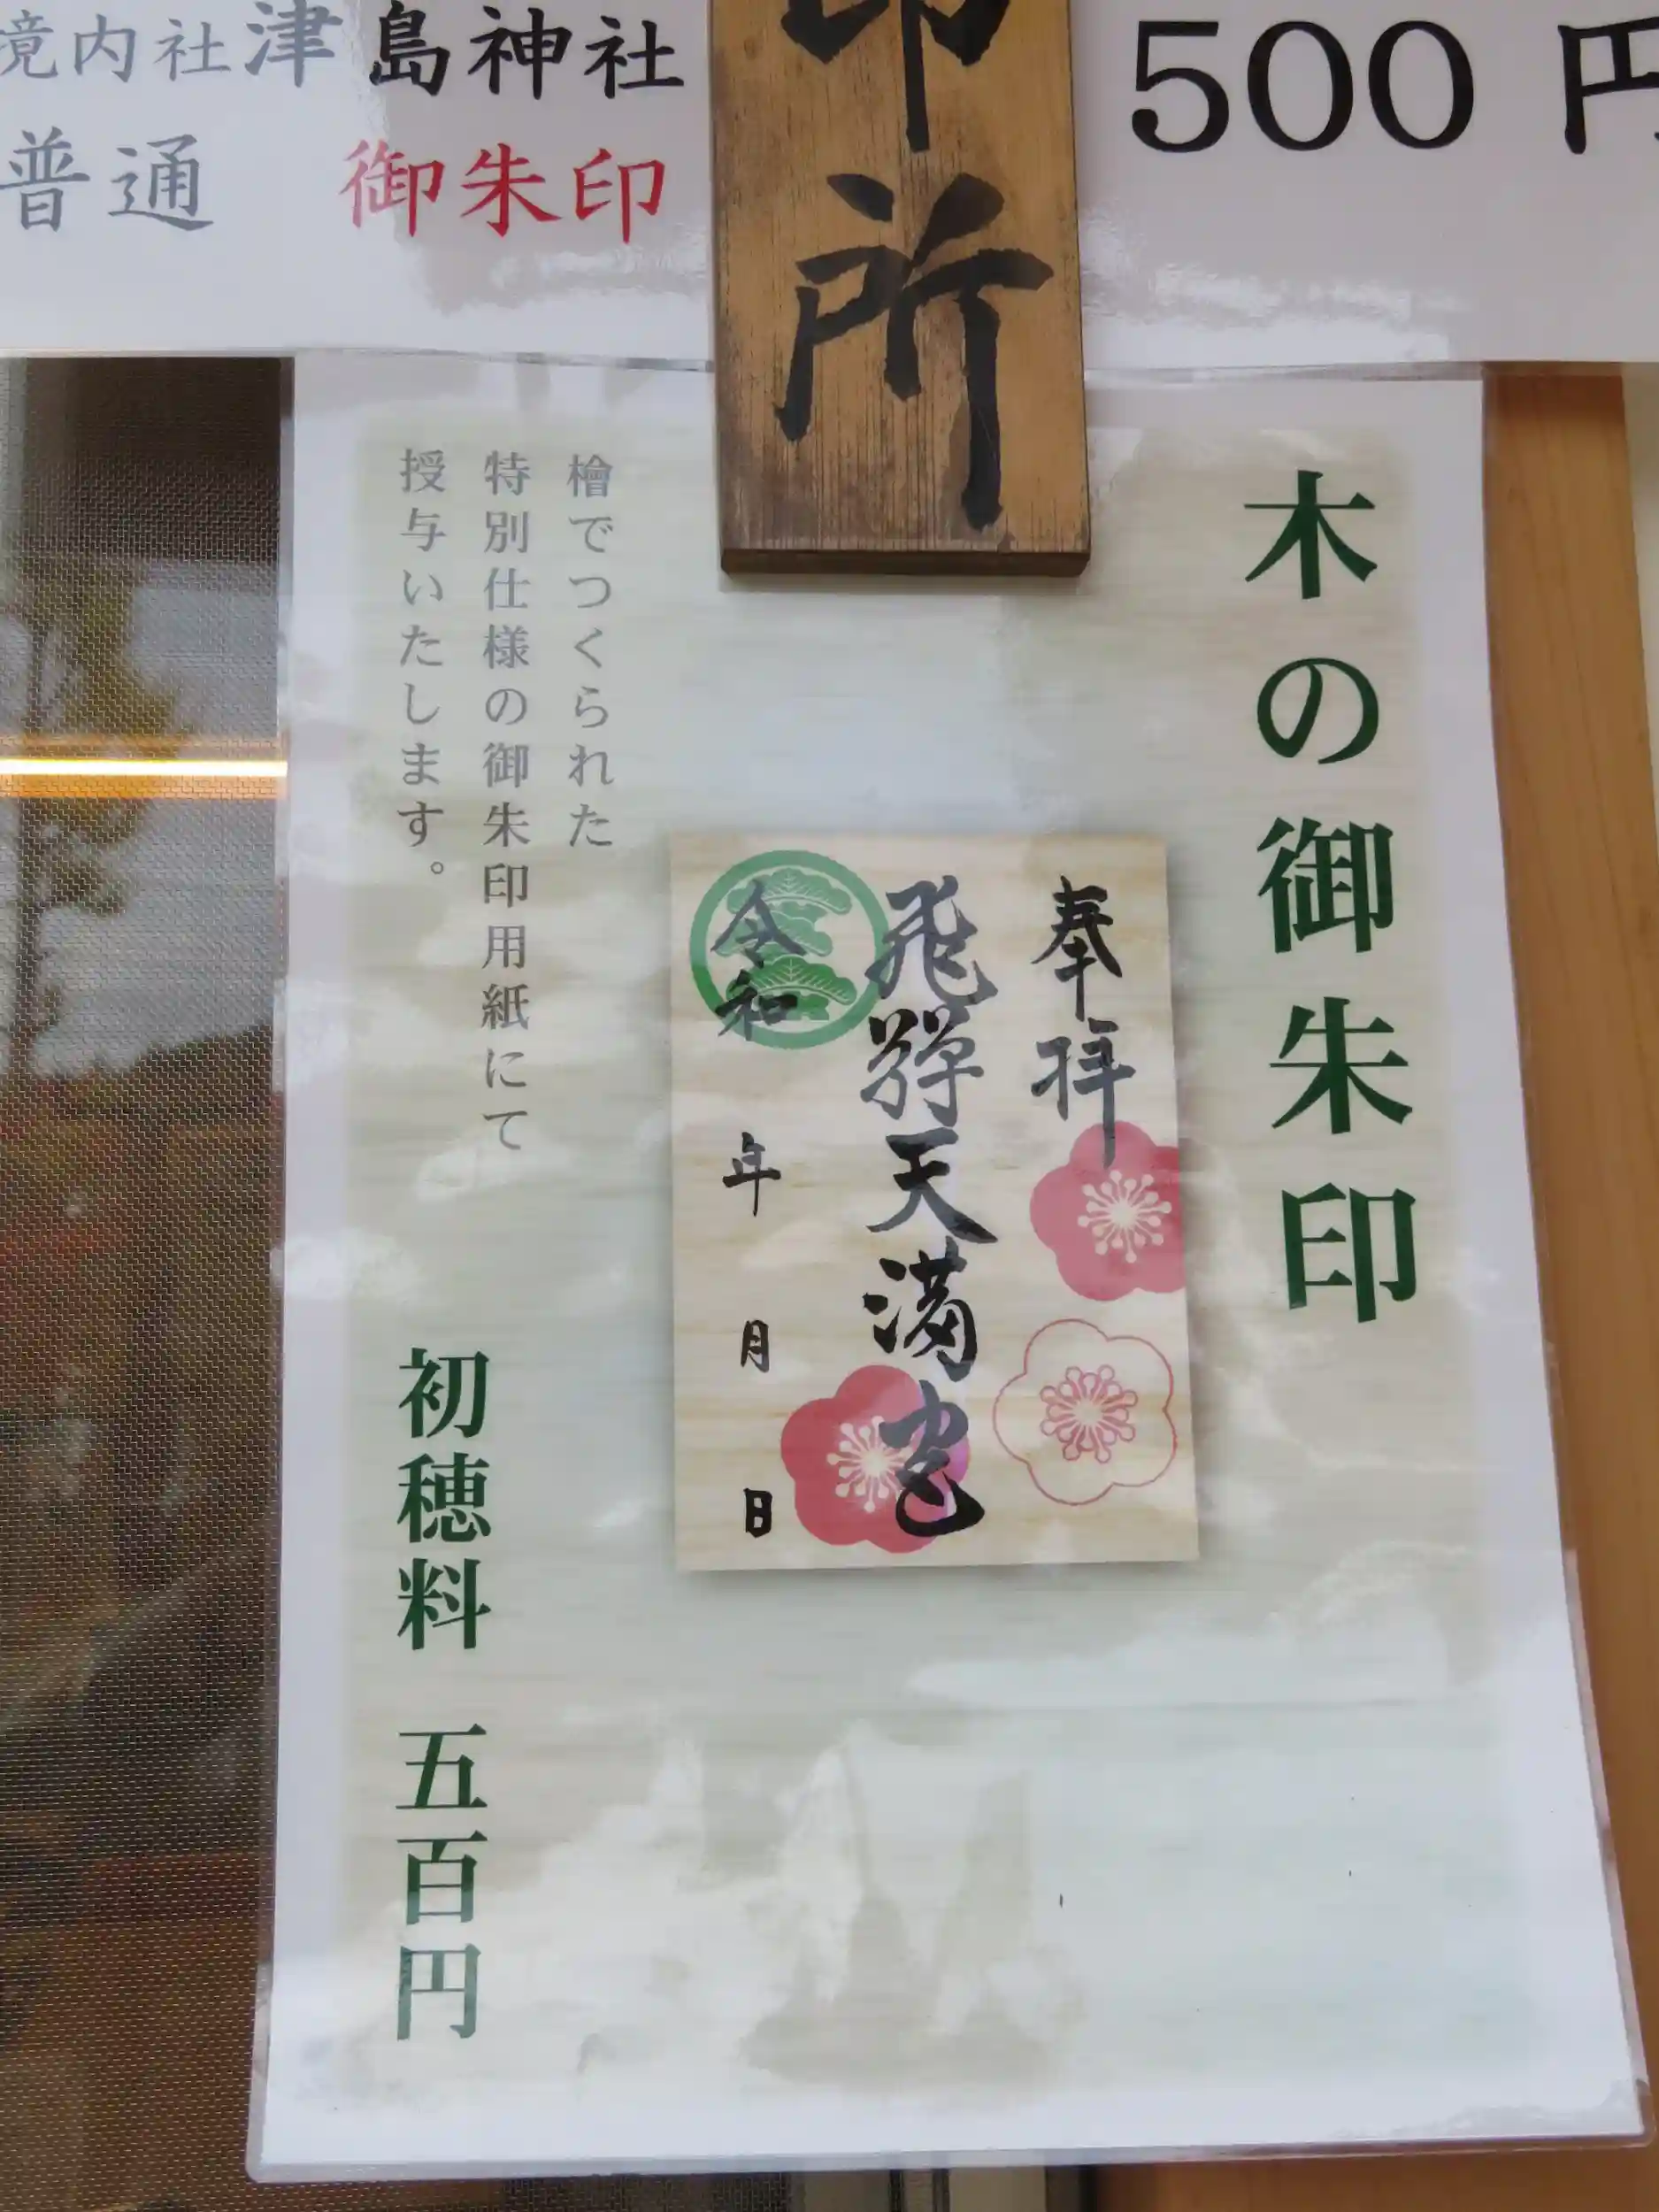 境内社津島神社
普通 御朱印
500 円
印所
木の御朱印
奉拝
飛騨天満宮
令和 年 月 日
檜でつくられた
特別仕様の御朱印用紙にて
授与いたします。
初穂料 五百円